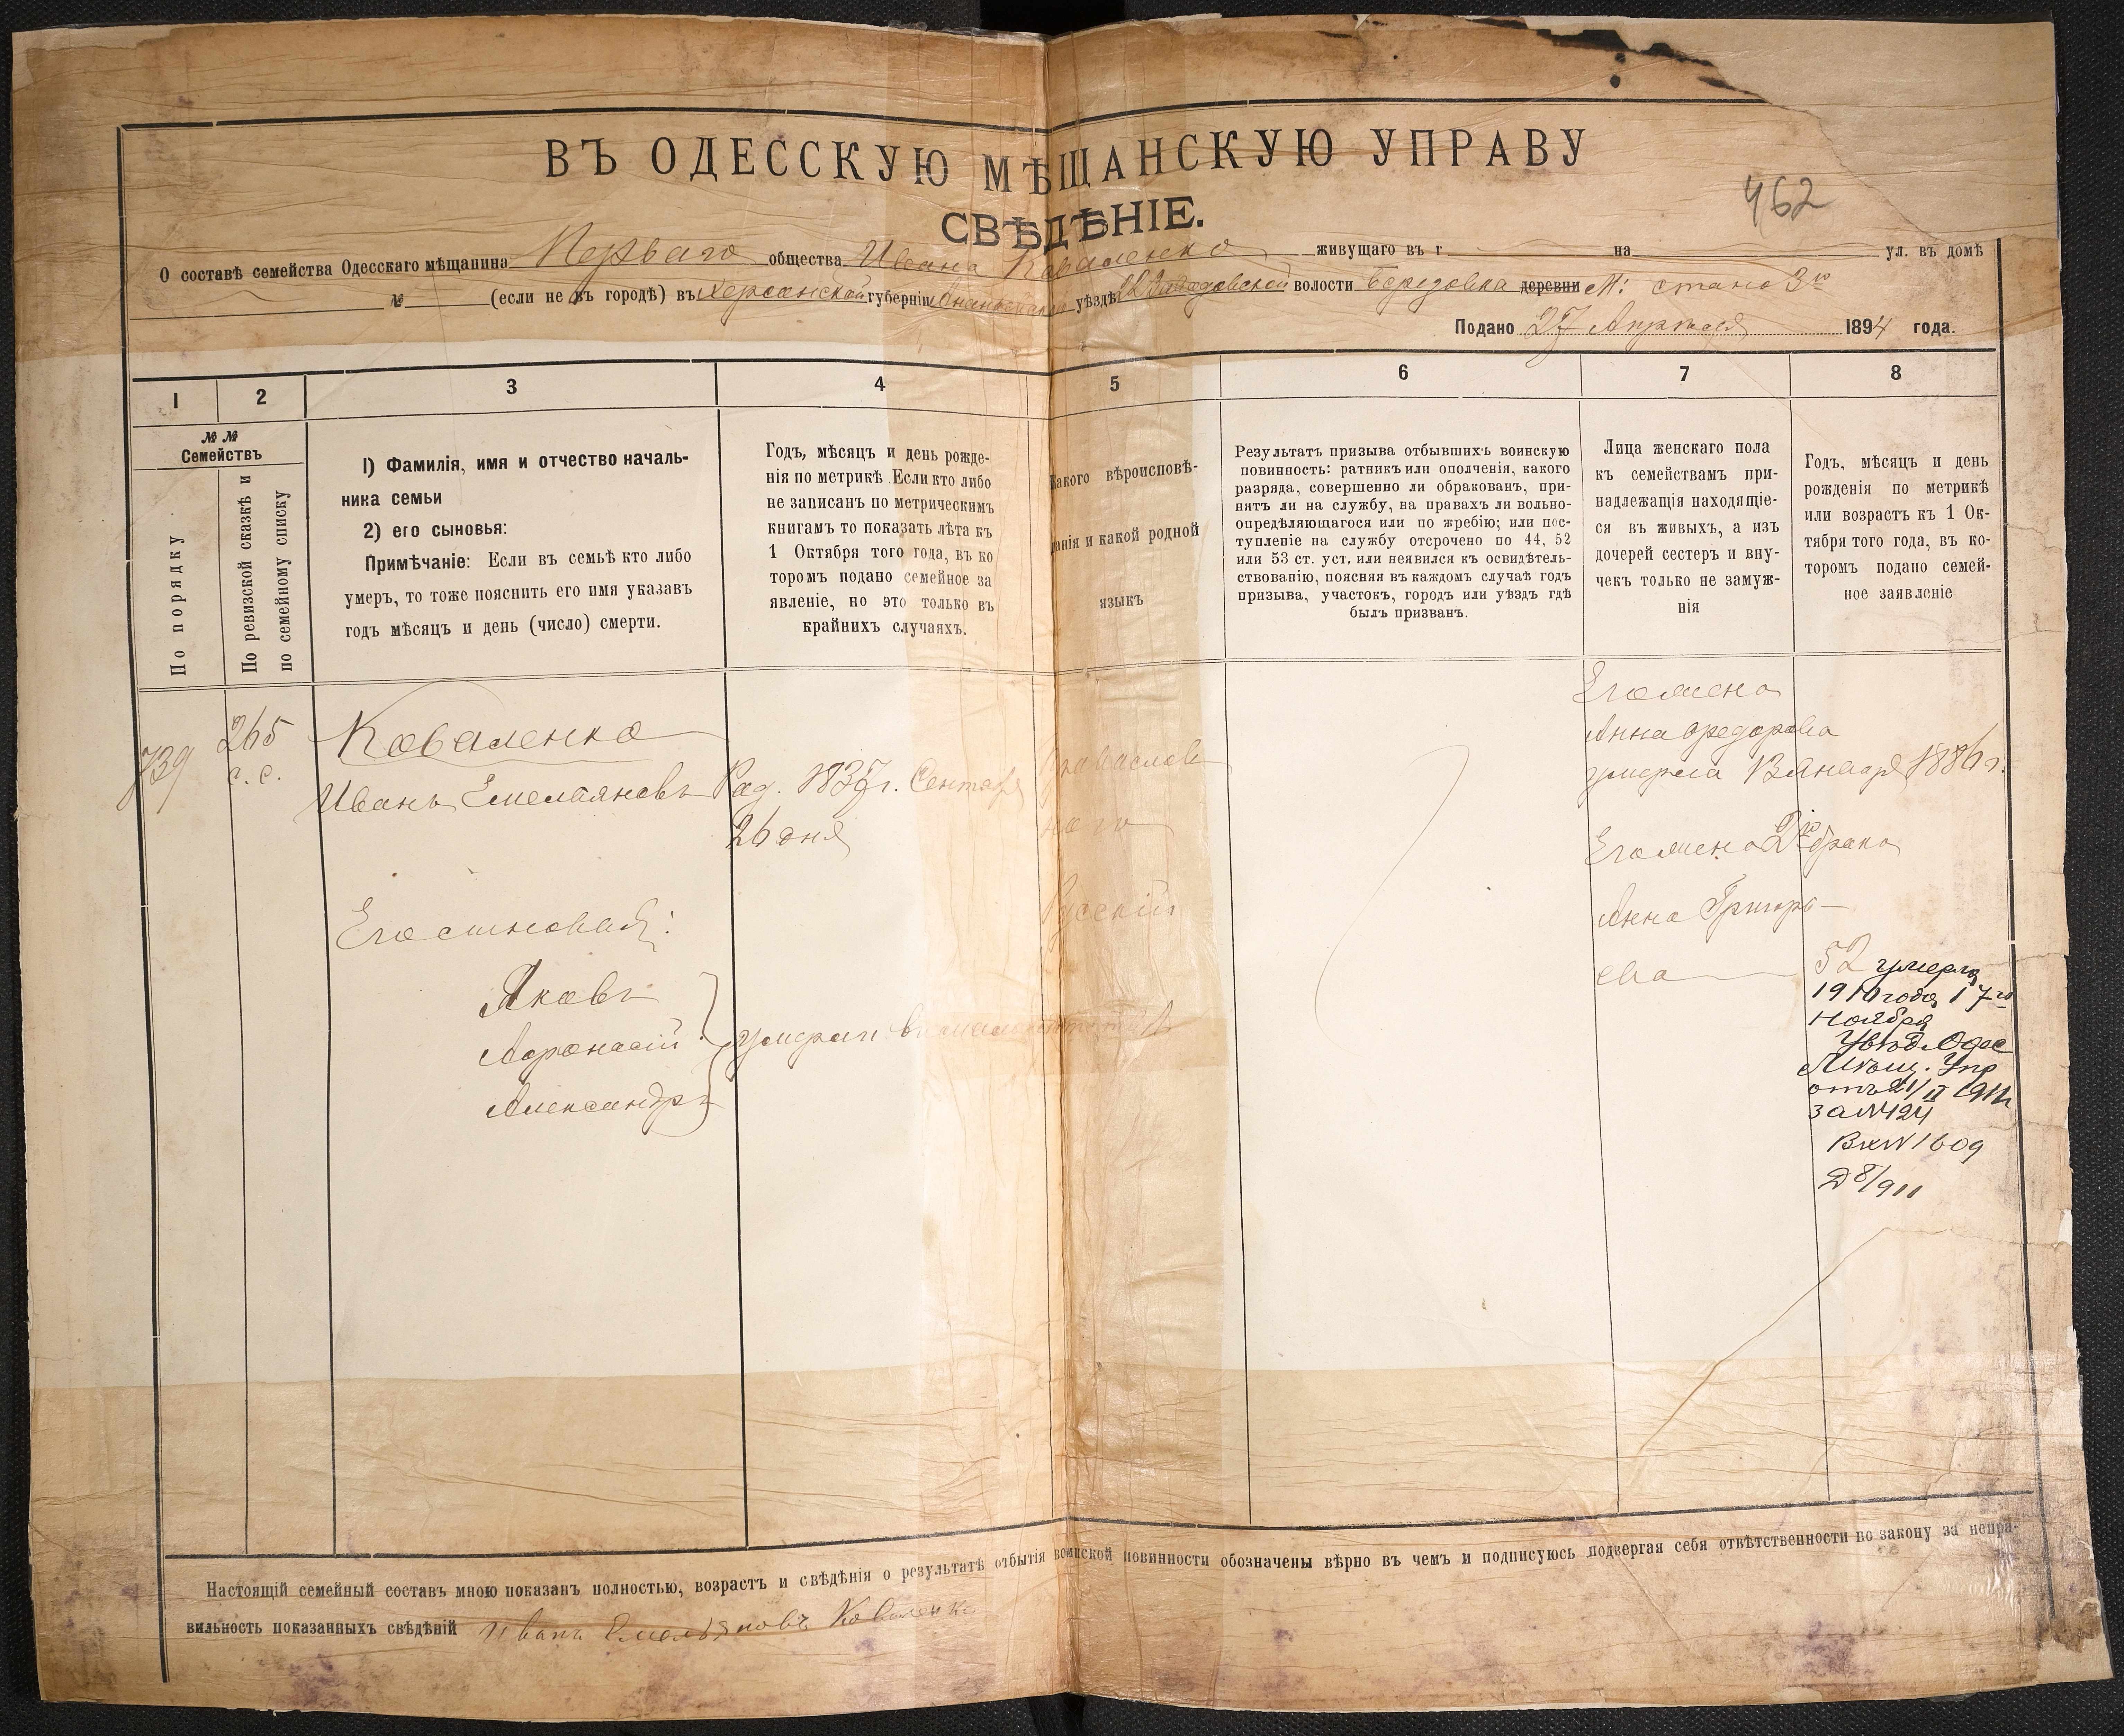 ВЪ ОДЕССКУЮ МѢЩАНСКУЮ УПРАВУ
462
СВѢДѢНІЕ.
О составѣ семейства Одесскаго мѣщанина Перваго общества Ивана Коваленко живущаго въ г на ул. въ домѣ
№ (если не въ городѣ) въ Херсонской губерніи Ананьевскаго уѣздѣ волости деревни М: стана 3го
Подано 27 Апрѣля 1894 года.
1 2 3 4 5 6 7 8
№ № Семействъ
По порядку
По ревизской сказкѣ и
по семейному списку
1) Фамилія, имя и отчество началь-
ника семьи
2) его сыновья:
Примѣчаніе: Если въ семьѣ кто либо
умеръ, то тоже пояснить его имя указавъ
годъ мѣсяцъ и день (число) смерти.
Годъ, мѣсяцъ и день рожде-
нія по метрикѣ Если кто либо
не записанъ по метрическимъ
книгамъ то показать лѣта къ
1 Октября того года, въ ко
торомъ подано семейное за
явленіе, но это только въ
крайнихъ случаяхъ.
Какого вѣроисповѣ-
данія и какой родной
языкъ
Результатъ призыва отбывшихъ воинскую
повинность: ратникъ или ополченія, какого
разряда, совершенно ли обракованъ, при-
нятъ ли на службу, на правахъ ли вольно-
опредѣляющагося или по жребію; или пос-
тупленіе на службу отсрочено по 44, 52
или 53 ст. уст, или неявился къ освидѣтель-
ствованію, поясняя въ каждомъ случаѣ годъ
призыва, участокъ, городъ или уѣздъ гдѣ
былъ призванъ.
Лица женскаго пола
къ семействамъ при-
надлежащія находящіе-
ся въ живыхъ, а изъ
дочерей сестеръ и вну-
чекъ только не замуж-
нія
Годъ, мѣсяцъ и день
рожденія по метрикѣ
или возрастъ къ 1 Ок-
тября того года, въ ко-
торомъ подано семей-
ное заявленіе
739
265
с. с.
Коваленко
Иванъ Емельяновъ
Род. 1837г. Сентяб
26 дня
Православ
наго
Русскій
Его сыновья:
Яковъ
Афанасій
Александръ
умерли
Его жена
Анна Федорова
умерла 13 Января 1886 г.
Его жена 2го брака
Анна Григорь-
ева
52 умерла
1910 года 17го
ноября
Увѣд. Одес
Мѣщ. Упр
отъ 21/II 1911
за №424
Вх№ 1609
Д 8/911
Настоящій семейный составъ мною показанъ полностью, возрастъ и свѣдѣнія о результатѣ отбытія воинской повинности обозначены вѣрно въ чемъ и подписуюсь подвергая себя отвѣтственности по закону за непра-
вильность показанныхъ свѣдѣній Иванъ Емельяновъ Коваленко